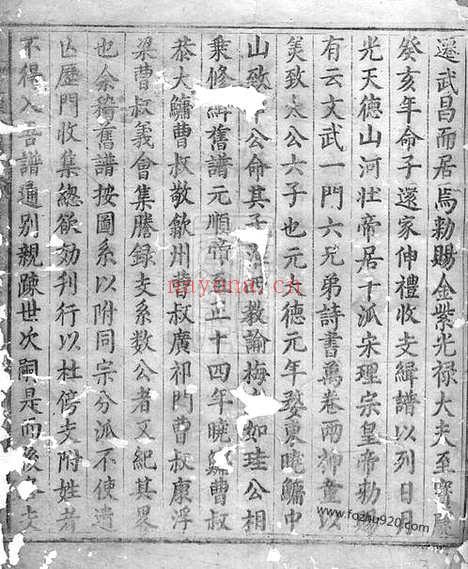 遷武昌而居焉勅賜金紫光禄大夫至寶
癸亥年命子還家伸禮收支緝譜以列日月
光天德山河壯帝居十派宋理宗皇帝勅賜
有云文武一門六兄弟詩書萬卷兩
美致太公六子也元大德元年婺東曉鱅中
山致公命其子西教諭梅如珪公相
乘修緝舊譜元順帝至正十四年曉鱅曹叔
恭大鱅曹叔敬歙州曹叔廣祁門曹叔康浮
梁曹叔義會集謄録支系數公者又紀其畧
也余稽舊譜按圖系以附同宗分派不使遺
凶歷門收集總欲効刋行以杜傍支附姓者
不得入吾譜通别親踈世次嗣是而後支
nayona.cn
www.fozhu920.com